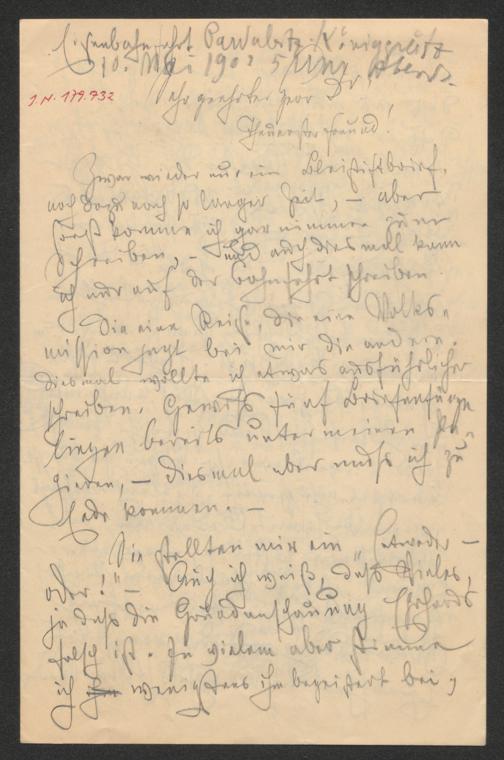 Eisenbahnfahrt Pardubitz-Königgrätz
10. Mai 190 5 Uhr Abends.
I.N. 179.732
Sehr geehrter Herr Dr
Theuerster Freund!
Zwar wieder nur ein Bleistiftbrief,
noch dazu nach so langer Zeit, – aber
sonst komme ich gar nimmer zum
Schreiben, – und auch diesmal kann
ich nur auf der Bahnfahrt schreiben.
Die eine Reise, die eine Volks-
mission jagt bei mir die andere.
Diesmal wollte ich etwas ausführlicher
schreiben. Gewiß fünf Briefanfänge
liegen bereits unter meinen Pa-
pieren, – diesmal aber muß ich zu
Ende kommen. –
Sie stellten mir ein "Entweder –
oder!" – Auch ich weiß, daß Vieles,
ja daß die Grundanschauung Ehrhards
falsch ist. In vielem aber stimme
ich wenigstens ihm begeistert bei,